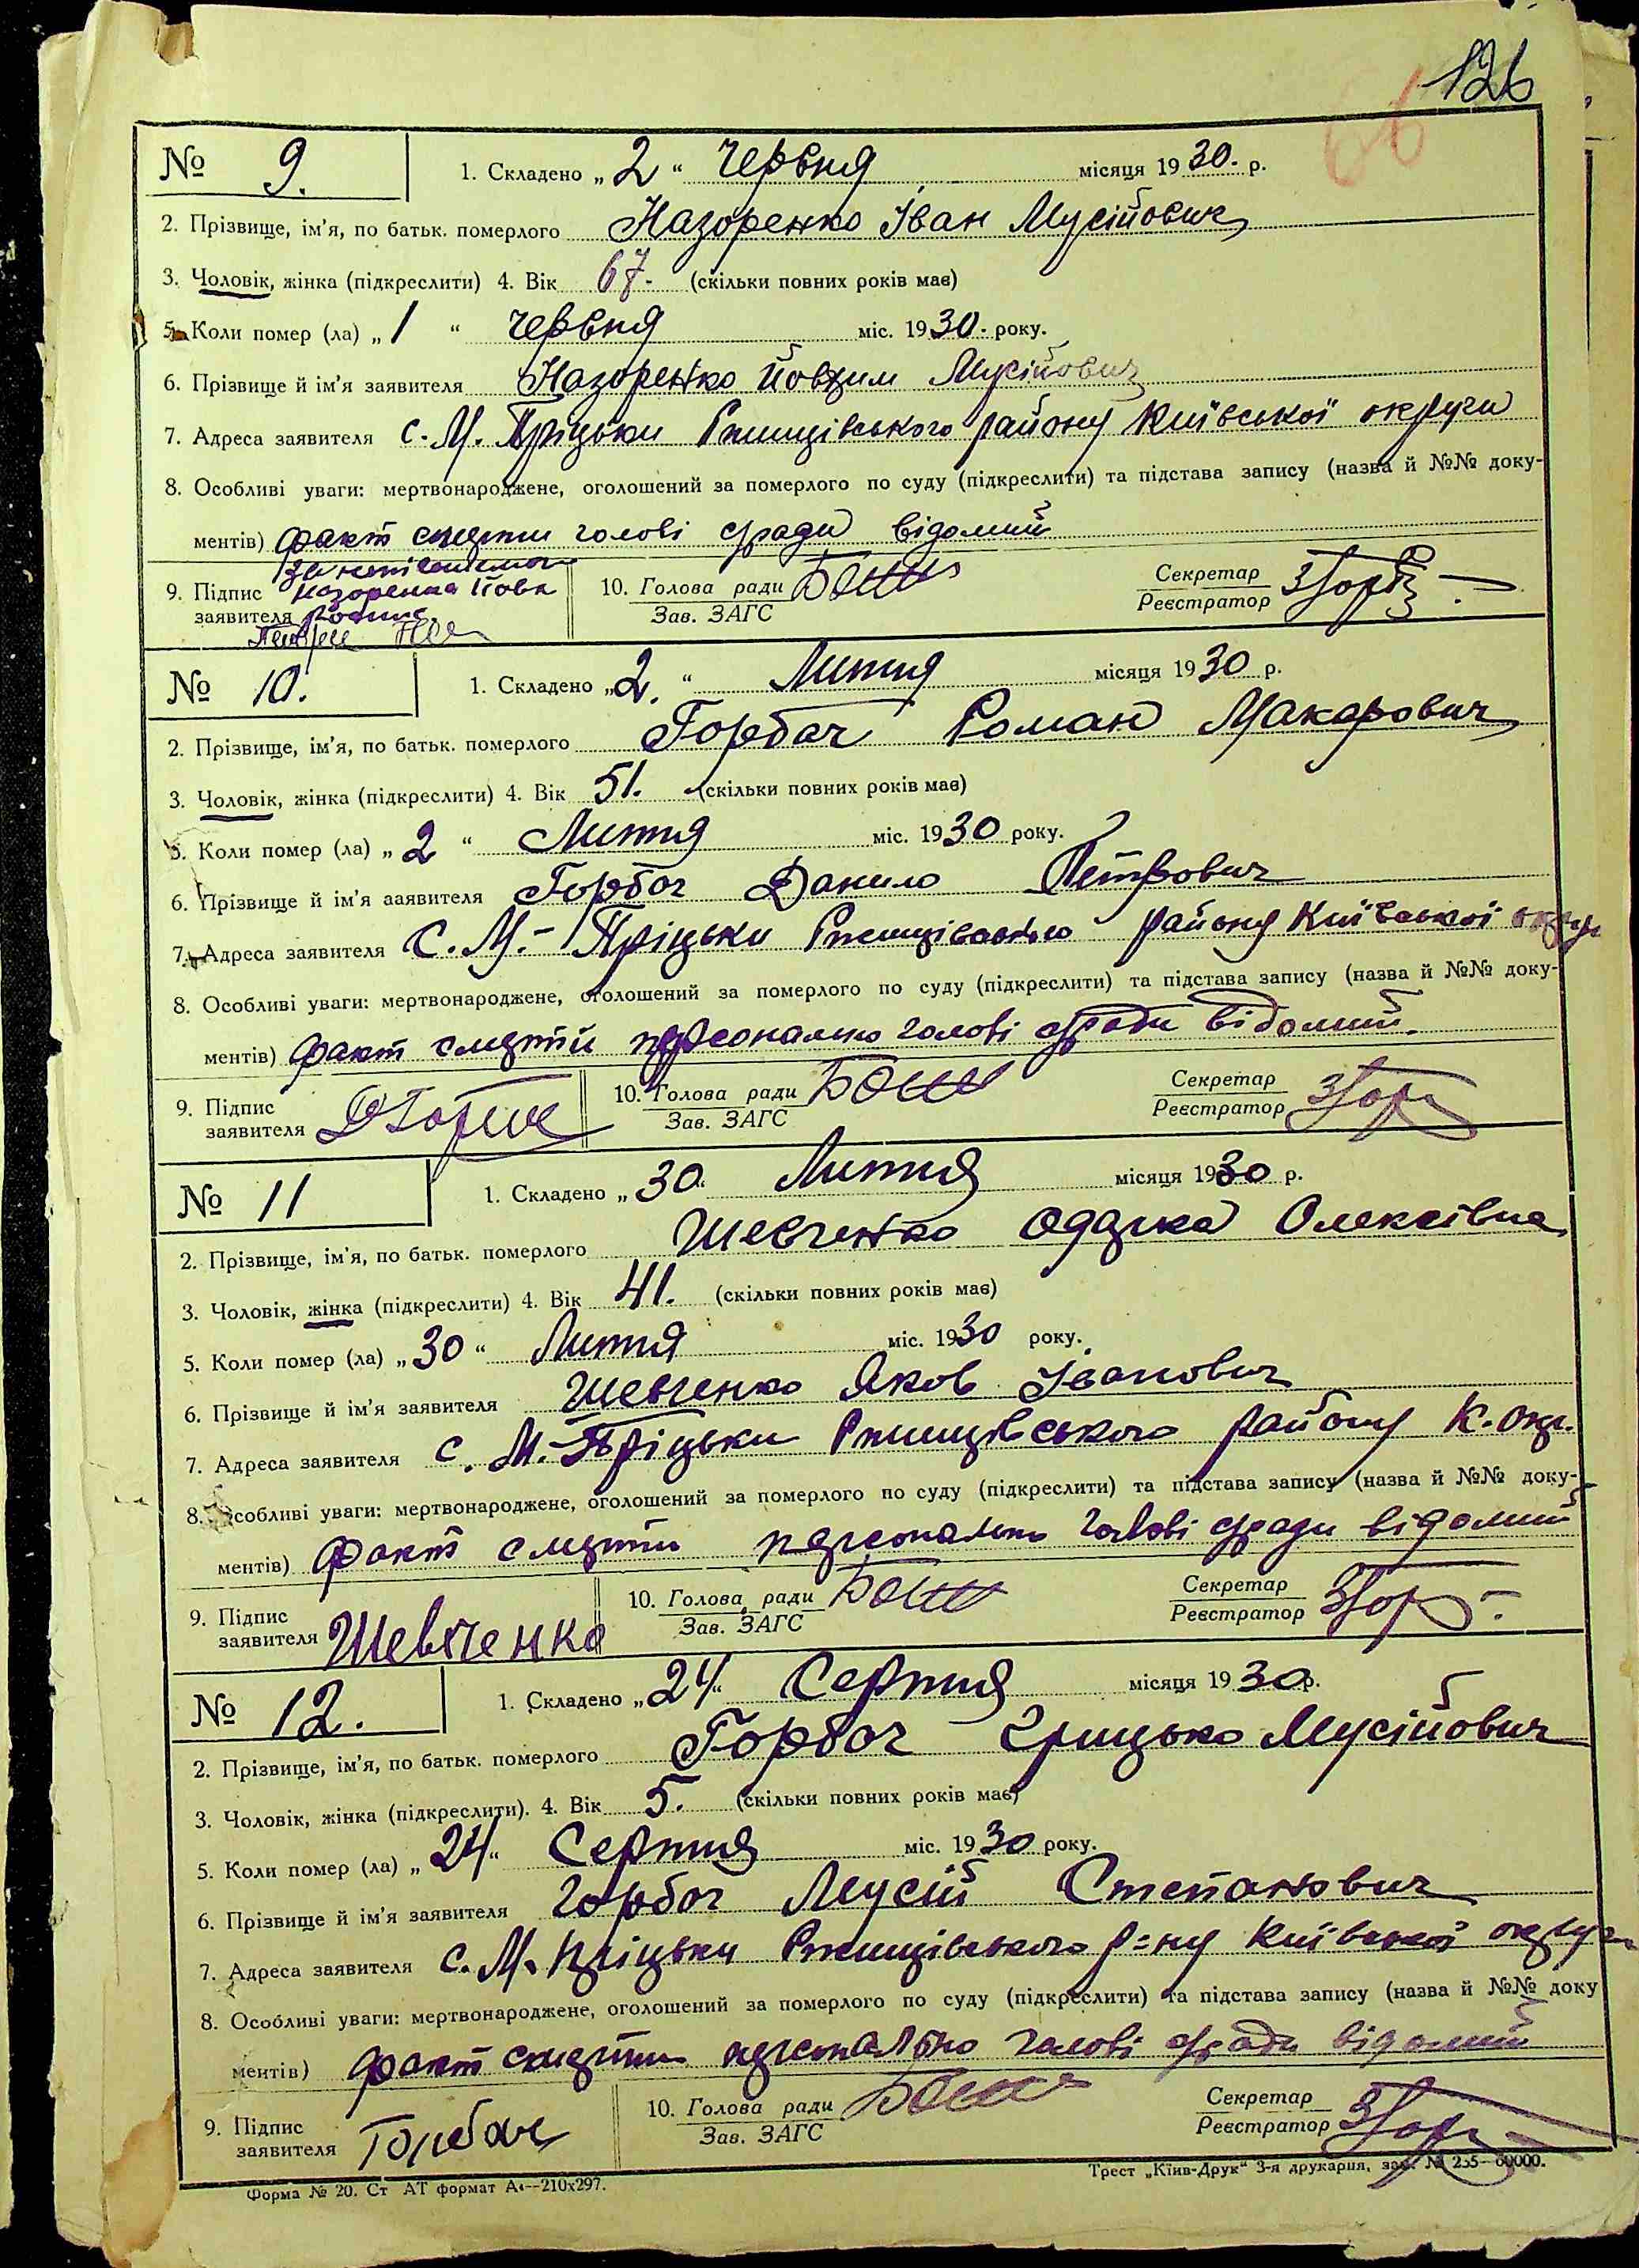 126
66
№ 9. 1. Складено „2“ Червня місяця 1930. р.
2. Прізвище, ім'я, по батьк. померлого Назоренко Іван Мусійович
3. Чоловік, жінка (підкреслити) 4. Вік 67. (скільки повних років має)
5. Коли помер (ла) „1“ червня міс. 1930. року.
6. Прізвище й ім'я заявителя Назоренко Мусійович
7. Адреса заявителя с. М. Пріцьки Ржищівського району Київської округи
8. Особливі уваги: мертвонароджене, оголошений за померлого по суду (підкреслити) та підстава запису (назва й №№ доку-
ментів) факт смерти голові с/ради відомий
9. Підпис Назоренка 10. Голова ради Секретар
заявителя Зав. ЗАГС Реєстратор
№ 10. 1. Складено „2.“ Липня місяця 1930 р.
2. Прізвище, ім'я, по батьк. померлого Горбач Роман Макарович
3. Чоловік, жінка (підкреслити) 4. Вік 51. (скільки повних років має)
5. Коли помер (ла) „2“ Липня міс. 1930 року.
6. Прізвище й ім'я заявителя Горбач Данило Петрович
7. Адреса заявителя С. М.-Пріцьки Ржищівського району Київської округи
8. Особливі уваги: мертвонароджене, оголошений за померлого по суду (підкреслити) та підстава запису (назва й №№ доку-
ментів) факт смерти персонально голові с/ради відомий.
9. Підпис 10. Голова ради Секретар
заявителя Зав. ЗАГС Реєстратор
№ 11 1. Складено „30“ Липня місяця 1930 р.
2. Прізвище, ім'я, по батьк. померлого Шевченко Одарка Олексівна
3. Чоловік, жінка (підкреслити) 4. Вік 41. (скільки повних років має)
5. Коли помер (ла) „30“ Липня міс. 1930 року.
6. Прізвище й ім'я заявителя Шевченко Яков Іванович
7. Адреса заявителя с. М.-Пріцьки Ржищівського району К. окр.
8. Особливі уваги: мертвонароджене, оголошений за померлого по суду (підкреслити) та підстава запису (назва й №№ доку-
ментів) факт смерти персонально голові с/ради відомий
9. Підпис 10. Голова ради Секретар
заявителя Шевченко Зав. ЗАГС Реєстратор
№ 12. 1. Складено „24“ Серпня місяця 1930 р.
2. Прізвище, ім'я, по батьк. померлого Горбач Грицько Мусійович
3. Чоловік, жінка (підкреслити). 4. Вік 5. (скільки повних років має)
5. Коли помер (ла) „24“ Серпня міс. 1930 року.
6. Прізвище й ім'я заявителя Горбач Мусій Степанович
7. Адреса заявителя с. М. Пріцьки Ржищівського р-ну Київської округи
8. Особливі уваги: мертвонароджене, оголошений за померлого по суду (підкреслити) та підстава запису (назва й №№ доку
ментів) факт смерти персонально голові с/ради відомий
9. Підпис 10. Голова ради Секретар
заявителя Горбач Зав. ЗАГС Реєстратор
Форма № 20. Ст АТ формат А4—210х297. Трест „Київ-Друк“ 3-я друкарня, зам. № 255—60000.